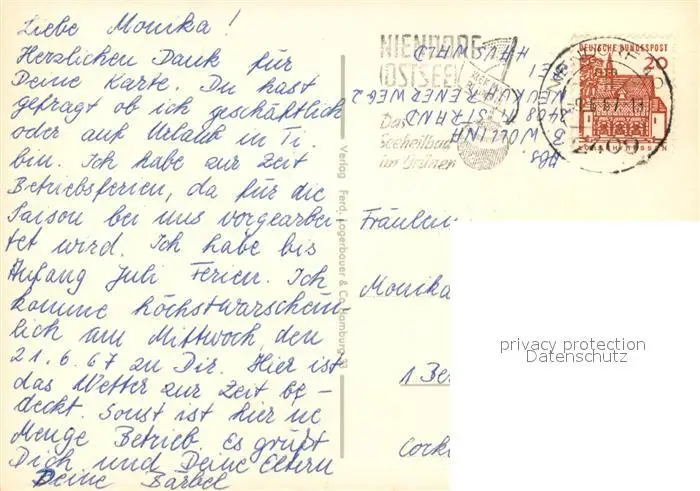 Liebe Monika!
Herzlichen Dank für
Deine Karte. Du hast
gefragt ob ich geschäftlich
oder auf Urlaub in Ti.
bin. Ich habe zur Zeit
Betriebsferien, da für die
Saison bei uns vorgearbei-
tet wird. Ich habe bis
Anfang Juli Ferien. Ich
komme höchstwarschein-
lich am Mittwoch, den
21.6.67 zu Dir. Hier ist
das Wetter zur Zeit be-
deckt. Sonst ist hier ne
Menge Betrieb. Es grüßt
Dich und Deine Eltern
Deine Bärbel
Verlag Ferd. Lagerbauer & Co Hamburg
NIENDORF
OSTSEE
Das
Seeheilbad
im Grünen
DEUTSCHE BUNDESPOST
20
Abs.
WOLLINA
2408 STRAND
Fräulein
Monika
1 Be
privacy protection
Datenschutz